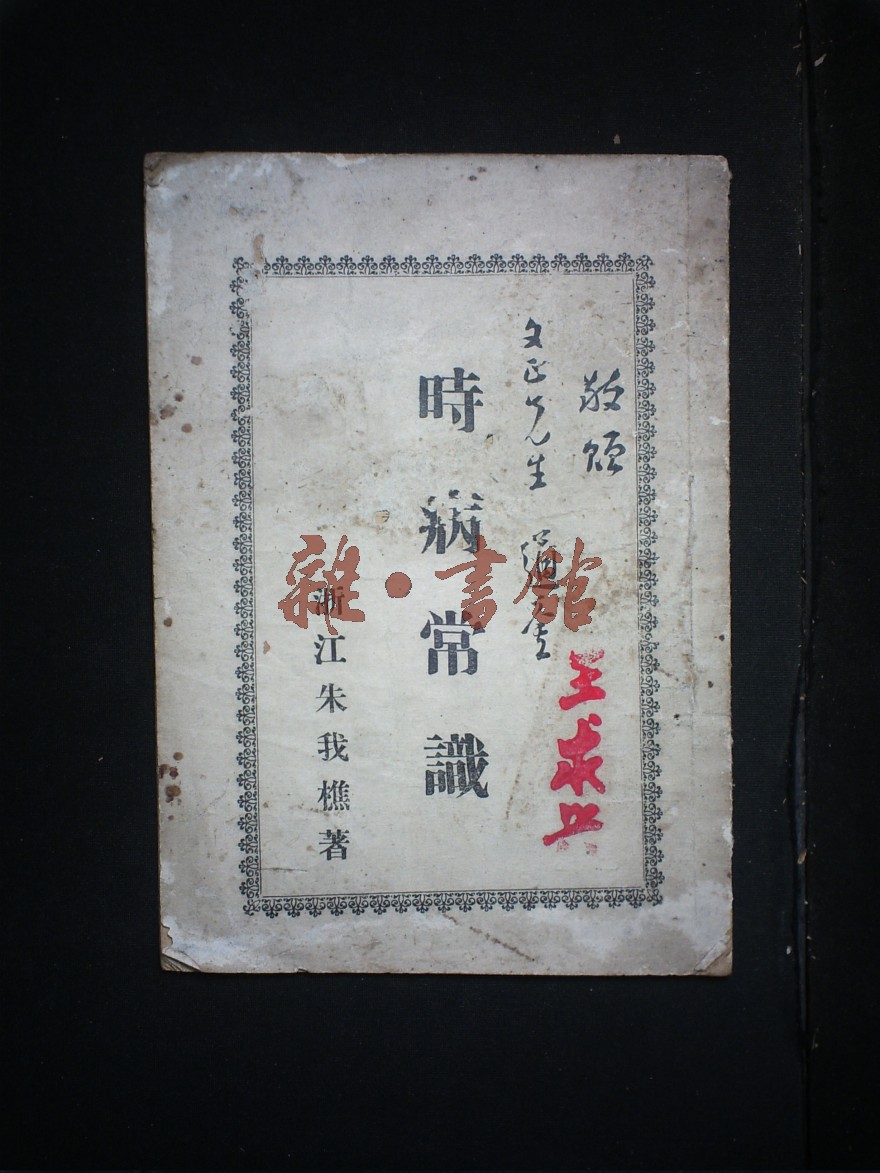 敬贈
文正先生
時病常識
浙江朱我樵著
雜·書館
王求兴